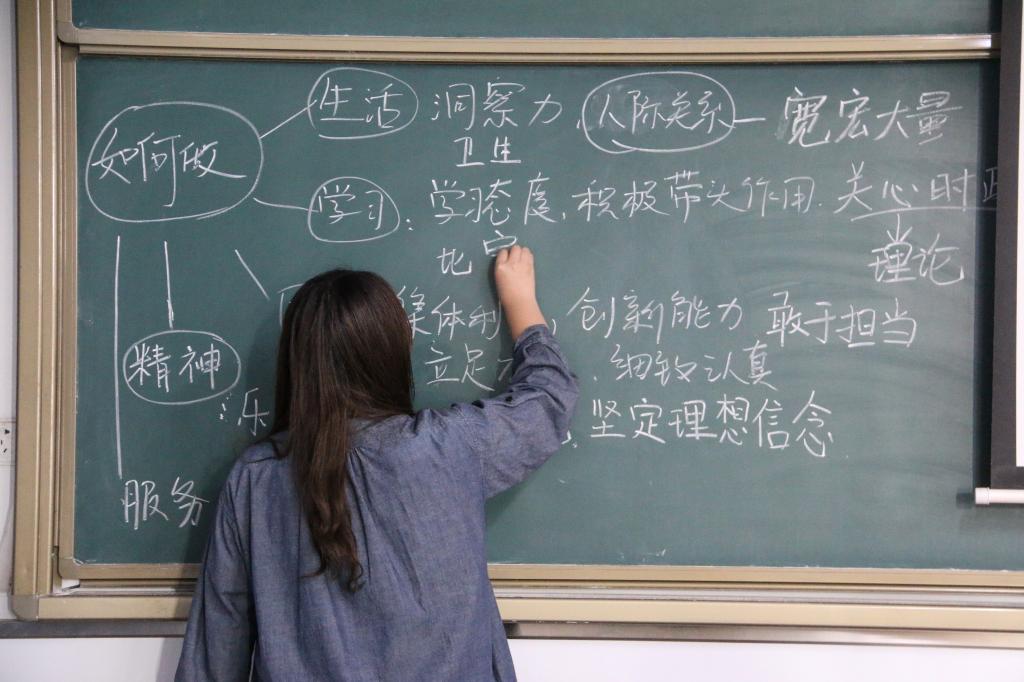 生活 洞察力、人际关系 — 宽宏大量
如何做
卫生
学习：学习态度、积极带头作用.关心时
理论
比
集体利 、创新能力 敢于担当
立足 、细致认真
精神
：乐 、坚定理想信念
服务